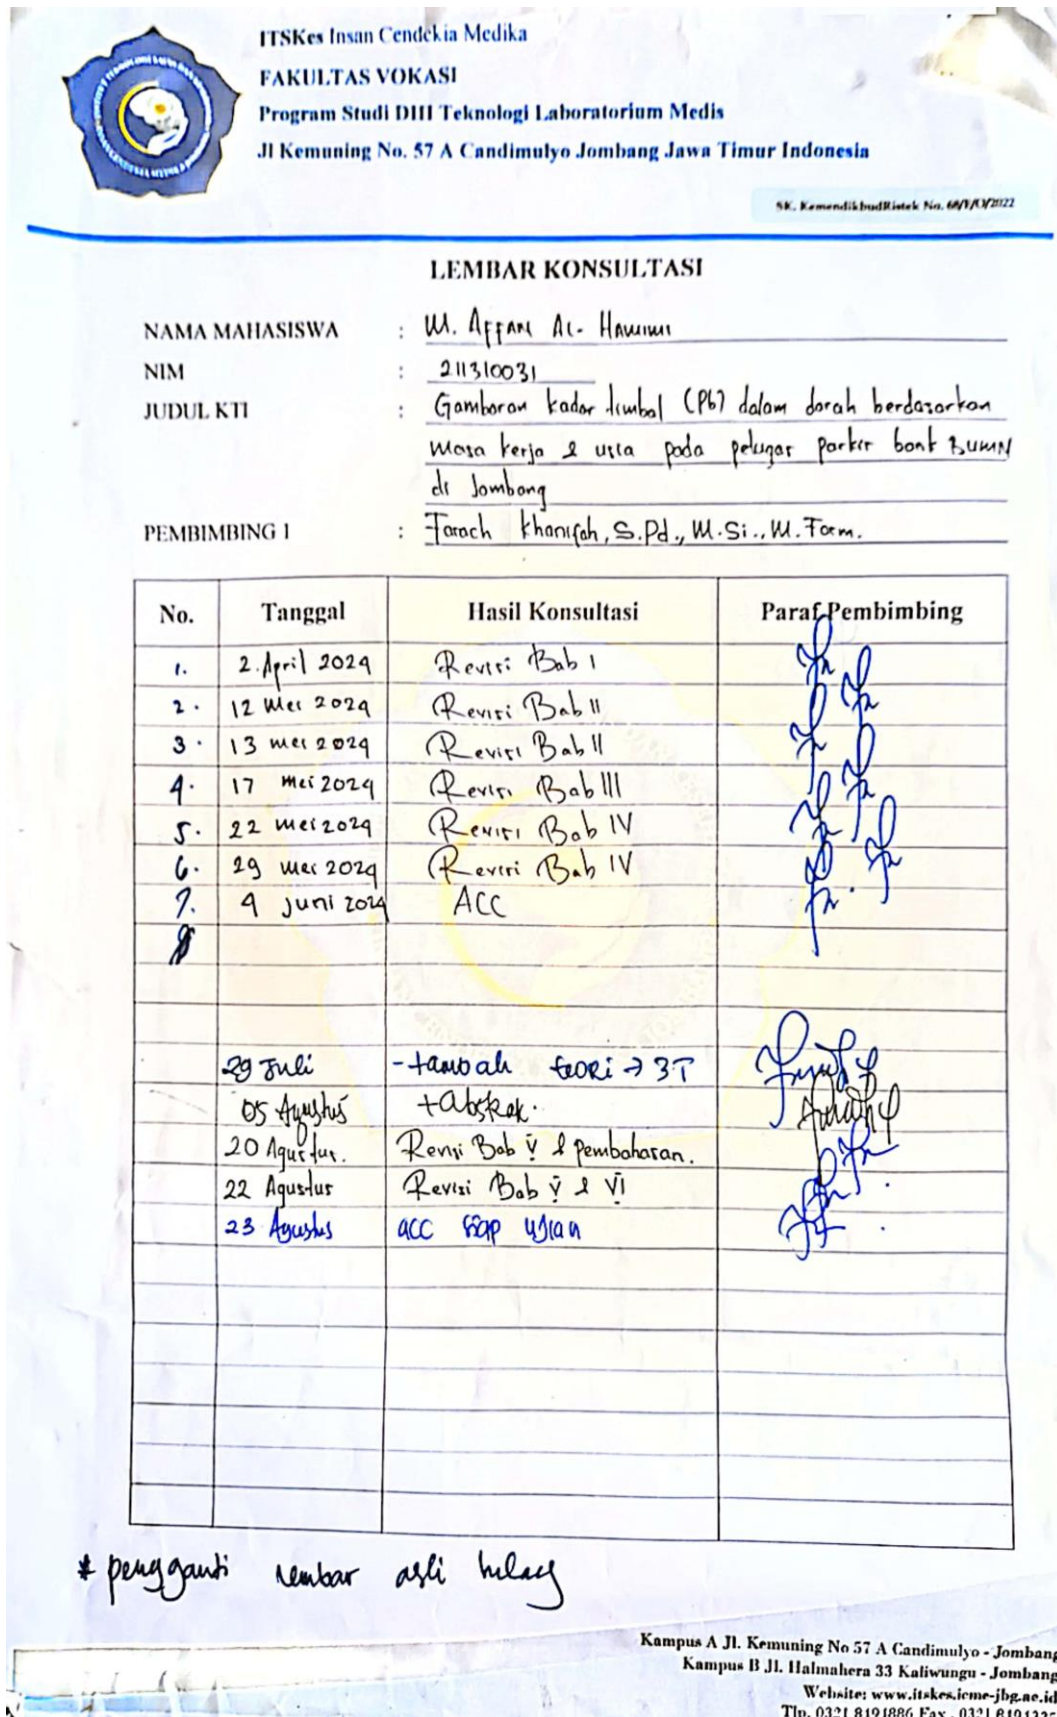 ITSKes Insan Cendekia Medika
FAKULTAS VOKASI
Program Studi DIII Teknologi Laboratorium Medis
Jl Kemuning No. 57 A Candimulyo Jombang Jawa Timur Indonesia
SK. KemendikbudRistek No. 68/E/O/2022
LEMBAR KONSULTASI
NAMA MAHASISWA : M. Affani Al-Hawimi
NIM : 211310031
JUDUL KTI : Gambaran kadar timbal (Pb) dalam darah berdasarkan
masa kerja & usia pada petugas parkir bank BUMN
di Jombang
PEMBIMBING I : Farach Khanifah, S.Pd., M.Si., M.Farm.
No. Tanggal Hasil Konsultasi Paraf Pembimbing
1. 2 April 2024 Revisi Bab I
2. 12 Mei 2024 Revisi Bab II
3. 13 mei 2024 Revisi Bab II
4. 17 mei 2024 Revisi Bab III
5. 22 mei 2024 Revisi Bab IV
6. 29 mei 2024 Revisi Bab IV
7. 4 juni 2024 ACC
29 Juli -tambah teori → 3T
05 Agustus +abstrak.
20 Agustus. Revisi Bab V & pembahasan.
22 Agustus Revisi Bab V & VI
23 Agustus acc siap ujian
* pengganti lembar asli hilang
Kampus A Jl. Kemuning No 57 A Candimulyo - Jombang
Kampus B Jl. Halmahera 33 Kaliwungu - Jombang
Website: www.itskes.icme-jbg.ac.id
Tlp. 0321 8191886 Fax. 0321